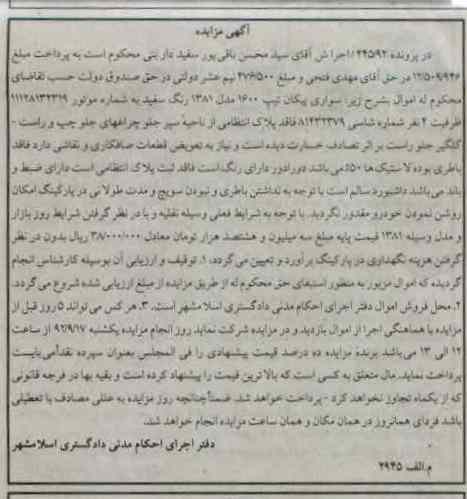 آگهی مزایده
در پرونده ۲۴۵/۹۲ اجرا ش آقای سید محسن باقی پور سفید دار بنی محکوم است به پرداخت مبلغ
۱۲/۵۰۹/۹۴۶ در حق آقای مهدی فتحی و مبلغ ۴۷۶/۵۰۰ نیم عشر دولتی در حق صندوق دولت حسب تقاضای
محکوم له اموال بشرح زیر: سواری پیکان تیپ ۱۶۰۰ مدل ۱۳۸۱ رنگ سفید به شماره موتور ۱۱۱۲۸۱۳۲۳۱۹
ظرفیت ۴ نفر شماره شاسی ۸۱۴۳۲۳۷۹ فاقد پلاک انتظامی از ناحیه سپر جلو چراغهای جلو چپ و راست -
گلگیر جلو راست بر اثر تصادف خسارت دیده است و نیاز به تعویض قطعات صافکاری و نقاشی دارد فاقد
باطری بوده لاستیک ها ۵۰٪ می باشد دور ادور دارای رنگ است فاقد ثبت پلاک انتظامی است دارای ضبط و
باند می باشد داشبورد سالم است با توجه به نداشتن باطری و نبودن سویچ و مدت طولانی در پارکینگ امکان
روشن نمودن خودرو مقدور نگردید. با توجه به شرایط فعلی وسیله نقلیه و با در نظر گرفتن شرایط روز بازار
و مدل وسیله ۱۳۸۱ قیمت پایه مبلغ سه میلیون و هشتصد هزار تومان معادل ۳۸/۰۰۰/۰۰۰ ریال بدون در نظر
گرفتن هزینه نگهداری در پارکینگ برآورد و تعیین می گردد. ۱. توقیف و ارزیابی آن بوسیله کارشناس انجام
گردیده که اموال مزبور به منظور استیفای حق محکوم له از طریق مزایده از مبلغ ارزیابی شده شروع می گردد.
۲. محل فروش اموال دفتر اجرای احکام مدنی دادگستری اسلامشهر است. ۳. هر کس می تواند ۵ روز قبل از
مزایده با هماهنگی اجرا از اموال بازدید و در مزایده شرکت نماید روز انجام مزایده یکشنبه ۹۲/۹/۱۷ از ساعت
۱۲ الی ۱۳ می باشد برنده مزایده ده درصد قیمت پیشنهادی را فی المجلس بعنوان سپرده نقداً می بایست
پرداخت نماید. مال متعلق به کسی است که بالاترین قیمت را پیشنهاد کرده است و بقیه بها در فرجه قانونی
که از یکماه تجاوز نخواهد کرد - پرداخت خواهد شد. ضمناً چنانچه روز مزایده به عللی مصادف با تعطیلی
باشد فردای همانروز در همان مکان و همان ساعت مزایده انجام خواهد شد.
دفتر اجرای احکام مدنی دادگستری اسلامشهر
م.الف ۲۹۴۵